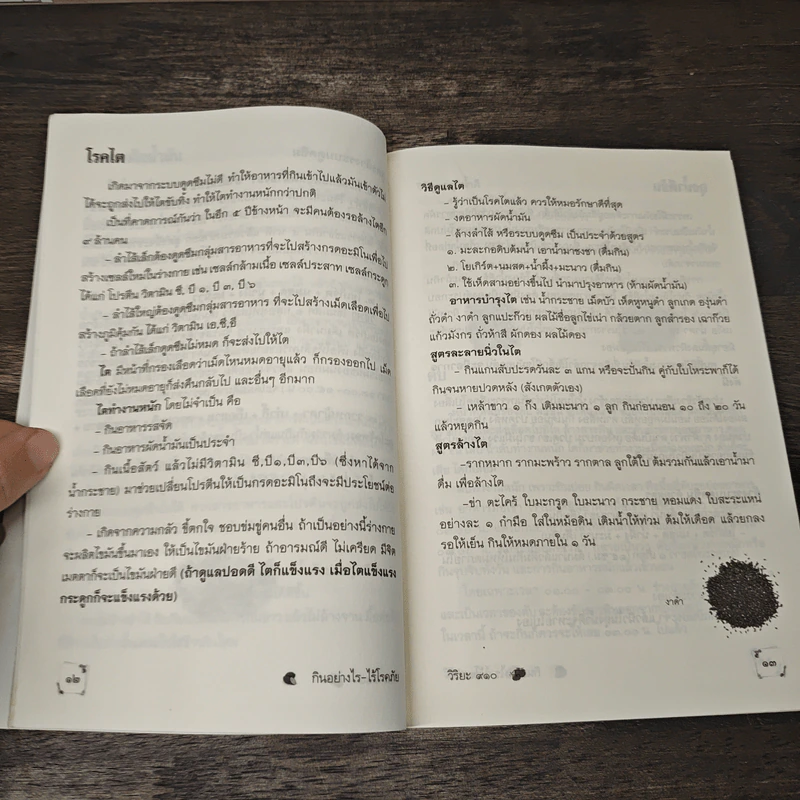 โรคไต
เกิดมาจากระบบดูดซึมไม่ดี ทำให้อาหารที่กินเข้าไปแล้วมันเข้าตัวไม่
ได้จะถูกส่งไปให้ไตขับทิ้ง ทำให้ไตทำงานหนักกว่าปกติ
เป็นที่คาดการณ์กันว่า ในอีก ๕ ปีข้างหน้า จะมีคนต้องรอล้างไตอีก
๙ ล้านคน
- ลำไส้เล็กต้องดูดซึมกลุ่มสารอาหารที่จะไปสร้างกรดอะมิโนเพื่อไป
สร้างเซลล์ใหม่ในร่างกาย เช่น เซลล์กล้ามเนื้อ เซลล์ประสาท เซลล์กระดูก
ได้แก่ โปรตีน วิตามิน ซี, บี ๑, บี ๓, บี ๖
- ลำไส้ใหญ่ต้องดูดซึมกลุ่มสารอาหาร ที่จะไปสร้างเม็ดเลือดเพื่อไป
สร้างภูมิคุ้มกัน ได้แก่ วิตามิน เอ,ซี,อี
- ถ้าลำไส้เล็กดูดซึมไม่หมด ก็จะส่งไปให้ไต
ไต มีหน้าที่กรองเลือดว่าเม็ดไหนหมดอายุแล้ว ก็กรองออกไป เม็ด
เลือดที่ยังไม่หมดอายุก็ส่งคืนกลับไป และอื่นๆ อีกมาก
ไตทำงานหนัก โดยไม่จำเป็น คือ
- กินอาหารรสจัด
- กินอาหารผัดน้ำมันเป็นประจำ
- กินเนื้อสัตว์ แล้วไม่มีวิตามิน ซี,บี๑,บี๓,บี๖ (ซึ่งหาได้จาก
น้ำกระชาย) มาช่วยเปลี่ยนโปรตีนให้เป็นกรดอะมิโนถึงจะมีประโยชน์ต่อ
ร่างกาย
- เกิดจากความกลัว ขี้ตกใจ ชอบข่มขู่คนอื่น ถ้าเป็นอย่างนี้ร่างกาย
จะผลิตไขมันขึ้นมาเอง ให้เป็นไขมันฝ่ายร้าย ถ้าอารมณ์ดี ไม่เครียด มีจิต
เมตตาก็จะเป็นไขมันฝ่ายดี (ถ้าดูแลปอดดี ไตก็แข็งแรง เมื่อไตแข็งแรง
กระดูกก็จะแข็งแรงด้วย)
๑๒
กินอย่างไร-ไร้โรคภัย
วิธีดูแลไต
- รู้ว่าเป็นโรคไตแล้ว ควรให้หมอรักษาดีที่สุด
- งดอาหารผัดน้ำมัน
- ล้างลำไส้ หรือระบบดูดซึม เป็นประจำด้วยสูตร
๑. มะละกอดิบต้มน้ำ เอาน้ำมาชงชา (ดื่มกิน)
๒. โยเกิร์ต+นมสด+น้ำผึ้ง+มะนาว (ดื่มกิน)
๓. ใช้เห็ดสามอย่างขึ้นไป นำมาปรุงอาหาร (ห้ามผัดน้ำมัน)
อาหารบำรุงไต เช่น น้ำกระชาย เม็ดบัว เห็ดหูหนูดำ ลูกเกด องุ่นดำ
ถั่วดำ งาดำ ลูกแปะก๊วย ผลไม้ชื่อลูกไข่เน่า กล้วยตาก ลูกสำรอง เฉาก๊วย
แก้วมังกร ถั่วห้าสี ผักดอง ผลไม้ดอง
สูตรละลายนิ่วในไต
- กินแกนสับปะรดวันละ ๓ แกน หรือจะปั่นกิน คู่กับใบโหระพาก็ได้
กินจนหายปวดหลัง (สังเกตตัวเอง)
- เหล้าขาว ๑ กั๊ง เติมมะนาว ๑ ลูก กินก่อนนอน ๑๐ ถึง ๒๐ วัน
แล้วหยุดกิน
สูตรล้างไต
-รากหมาก รากมะพร้าว รากตาล ลูกใต้ใบ ต้มรวมกันแล้วเอาน้ำมา
ดื่ม เพื่อล้างไต
-ข่า ตะไคร้ ใบมะกรูด ใบมะนาว กระชาย หอมแดง ใบสะระแหน่
อย่างละ ๑ กำมือ ใส่ในหม้อดิน เติมน้ำให้ท่วม ต้มให้เดือด แล้วยกลง
รอให้เย็น กินให้หมดภายใน ๑ วัน
งาดำ
วิริยะ ๙๑๐
๑๓